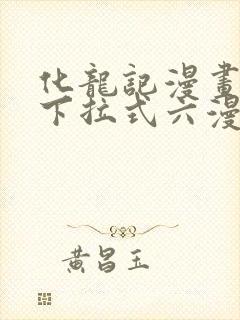 化龍記漫畫
下拉式六漫
黃昌玉